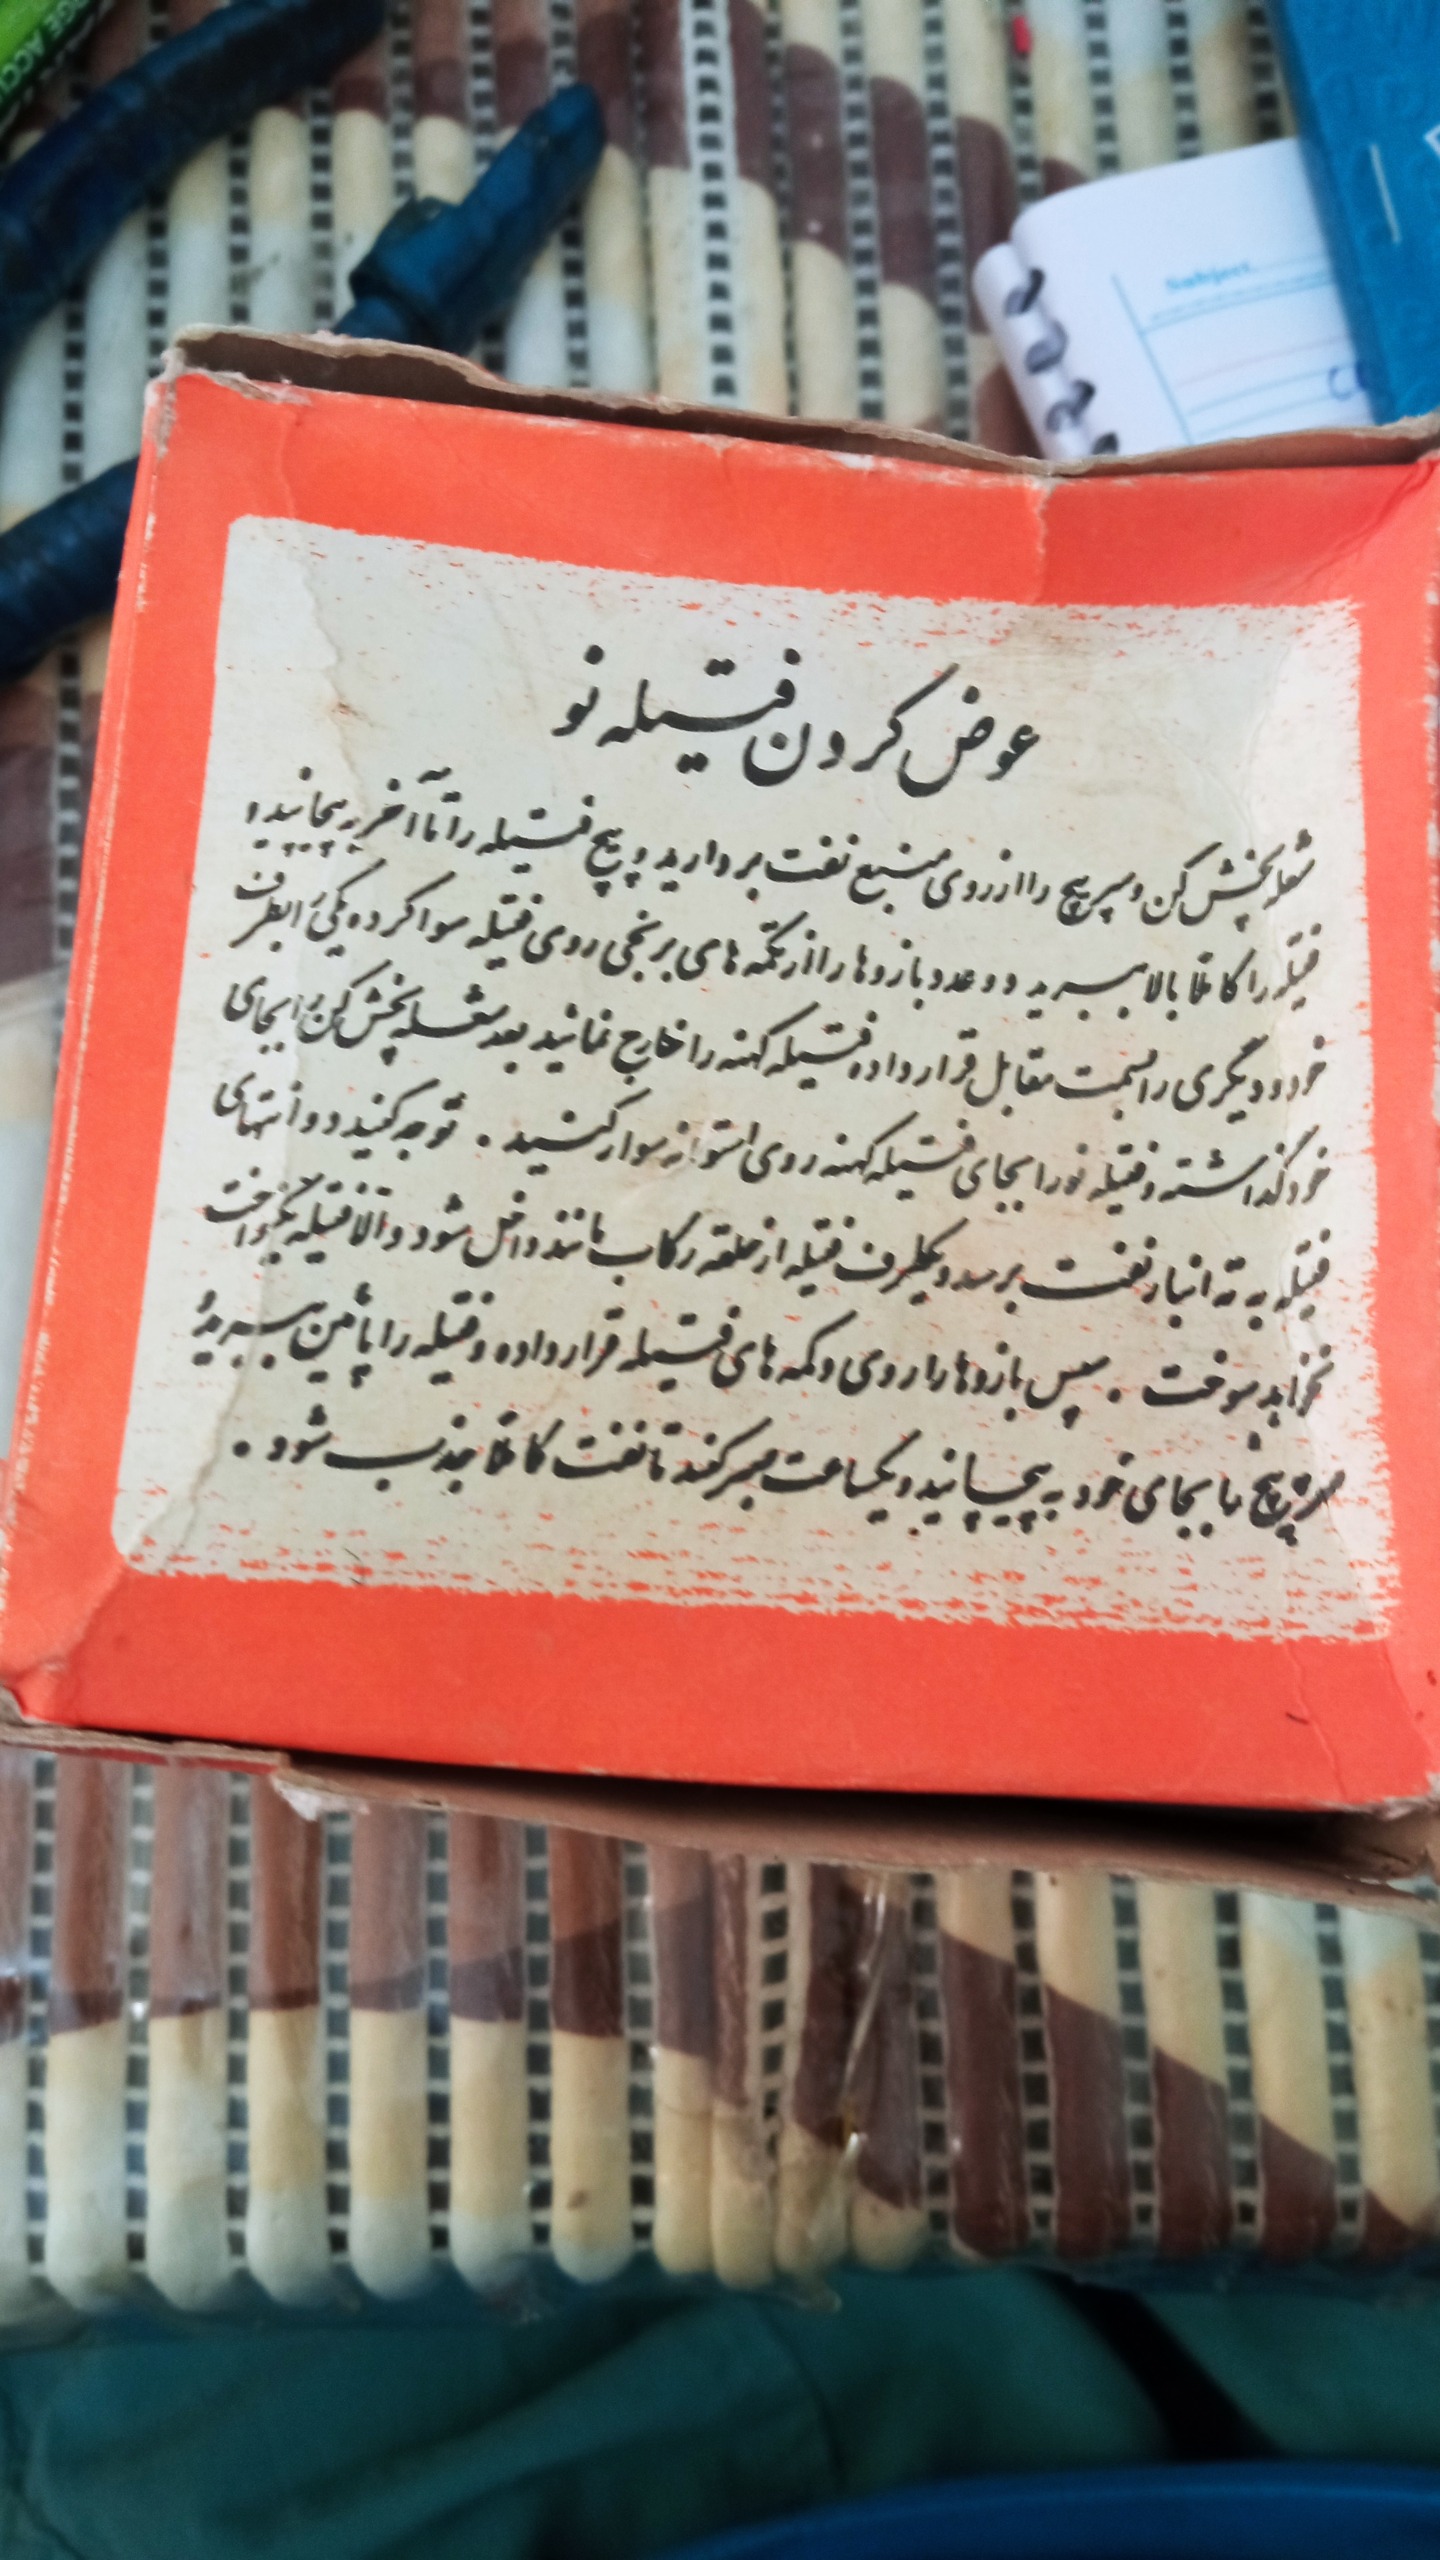 عوض کردن فتیله نو
شعله پخش کن و سرپیچ را از روی منبع نفت بردارید و پیچ فتیله را تا آخر به پیچانید تا
فتیله را کاملا بالا ببرید دو عدد بازوها را از تکمه های برنجی روی فتیله سوا کرده یکی را بطرف
خود و دیگری را بسمت مقابل قرار داده فتیله کهنه را خارج نمائید بعد شعله پخش کن را بجای
خود گذاشته و فتیله نو را بجای فتیله کهنه روی استوانه سوار کنید . توجه کنید دو انتهای
فتیله به ته انبار نفت برسد و یکطرف فتیله از حلقه رکاب مانند داخل شود و الا فتیله یکنواخت
نخواهد سوخت . سپس بازوها را روی دکمه های فتیله قرار داده و فتیله را پائین ببرید
سرپیچ را بجای خود به پیچانید و یکساعت صبر کنید تا نفت کاملا جذب شود .
Subject